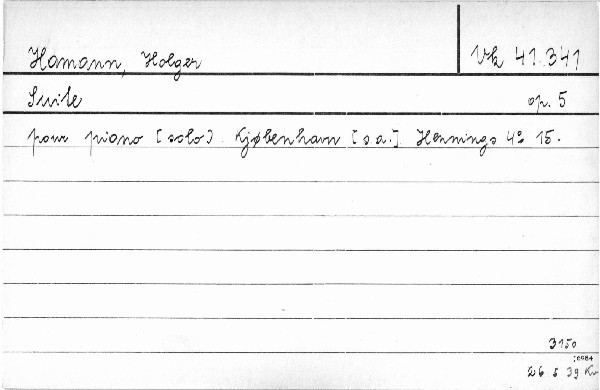 Hamann, Holger Vk 41.341
Suite op. 5
pour piano [solo]. Kjøbenhavn [s.a.]. Hennings 4° 15.
3150
10084
26 5 39 Kv